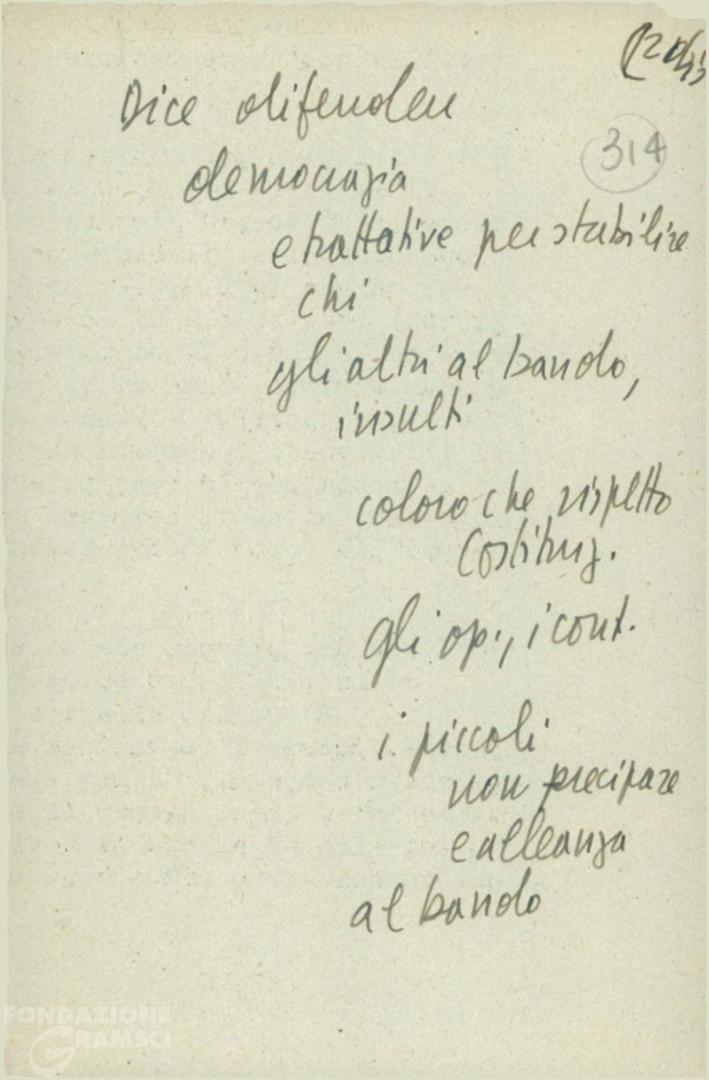 314
Dice difender
democrazia
e trattative per stabilire
chi
gli altri al bando,
insulti
coloro che rispetto
Costituz.
gli op., i cont.
i piccoli
non precipare
e alleanza
al bando
FONDAZIONE
GRAMSCI